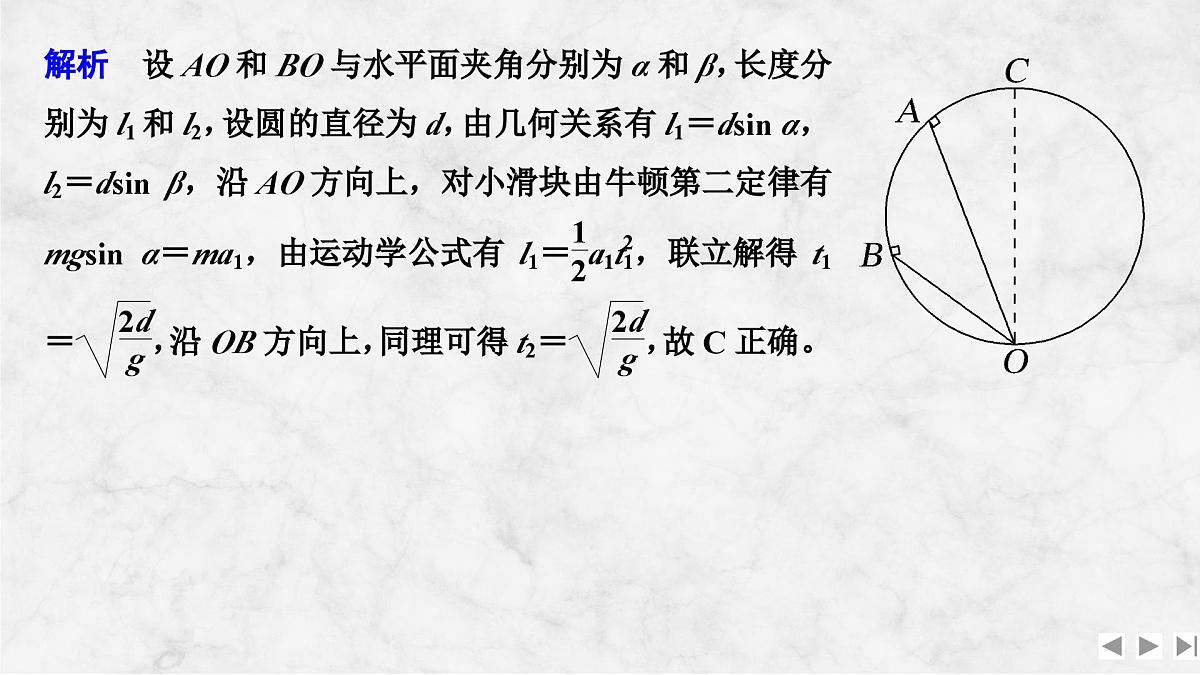 解析 设 AO 和 BO 与水平面夹角分别为 α 和 β,长度分
别为 l₁ 和 l₂,设圆的直径为 d,由几何关系有 l₁＝dsin α，
l₂＝dsin β，沿 AO 方向上，对小滑块由牛顿第二定律有
mgsin α＝ma₁，由运动学公式有 l₁＝\frac{1}{2}a₁t₁²，联立解得 t₁
＝\sqrt{\frac{2d}{g}},沿 OB 方向上,同理可得 t₂＝\sqrt{\frac{2d}{g}},故 C 正确。
C
A
B
O